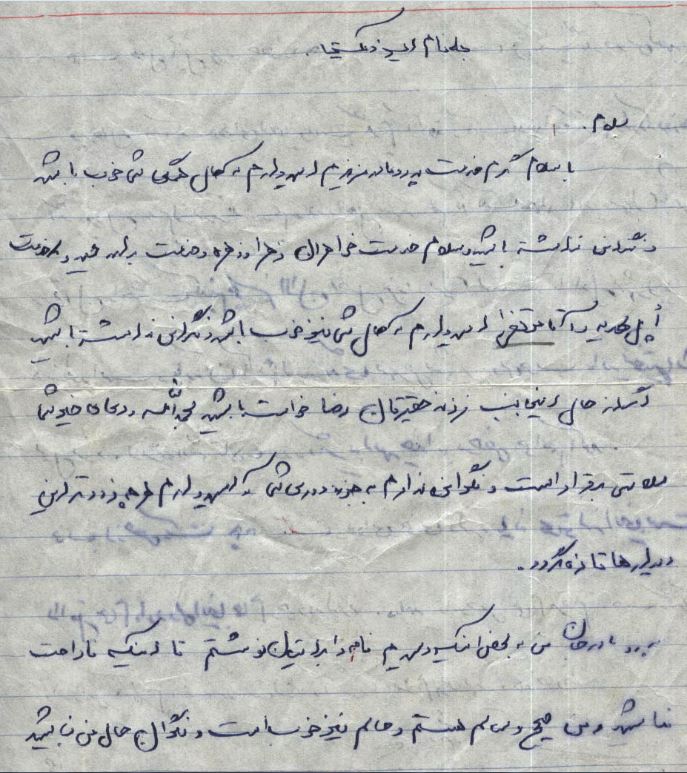 بنام ایزد یکتا
سلام.
با سلام گرم خدمت پدر و مادر عزیزم امیدوارم که حال همگی شما خوب باشد
و نگرانی نداشته باشید و سلام خدمت خواهران زهرا و و خدمت
امیدوارم که حال شما نیز خوب باشد و نگرانی نداشته باشید
اگر از حال اینجانب فرزند حقیرتان رضا خواسته باشید بحمدالله و دعای خیر شما
سلامتی برقرار است و نگرانی ندارم به جز دوری شما که امیدوارم هر چه زودتر این
دیدارها تازه گردد.
پدر و مادر جان من به محض اینکه رسیدم نامه را برایتان نوشتم تا اینکه ناراحت
نباشید و من صحیح و سالم هستم و حالم نیز خوب است و نگران حال من نباشید